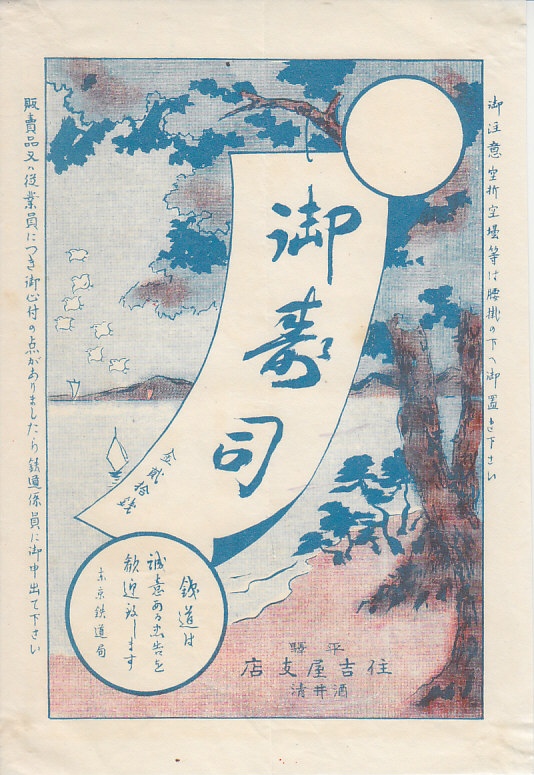 御注意空折空壜等は腰掛の下へ御置き下さい
御寿司
金貳拾錢
鉄道は
誠意ある忠告を
歓迎致します
東京鉄道局
平驛
住吉屋支店
酒井清
販賣品又ハ従業員につき御心付の点がありましたら鉄道係員に御申出て下さい